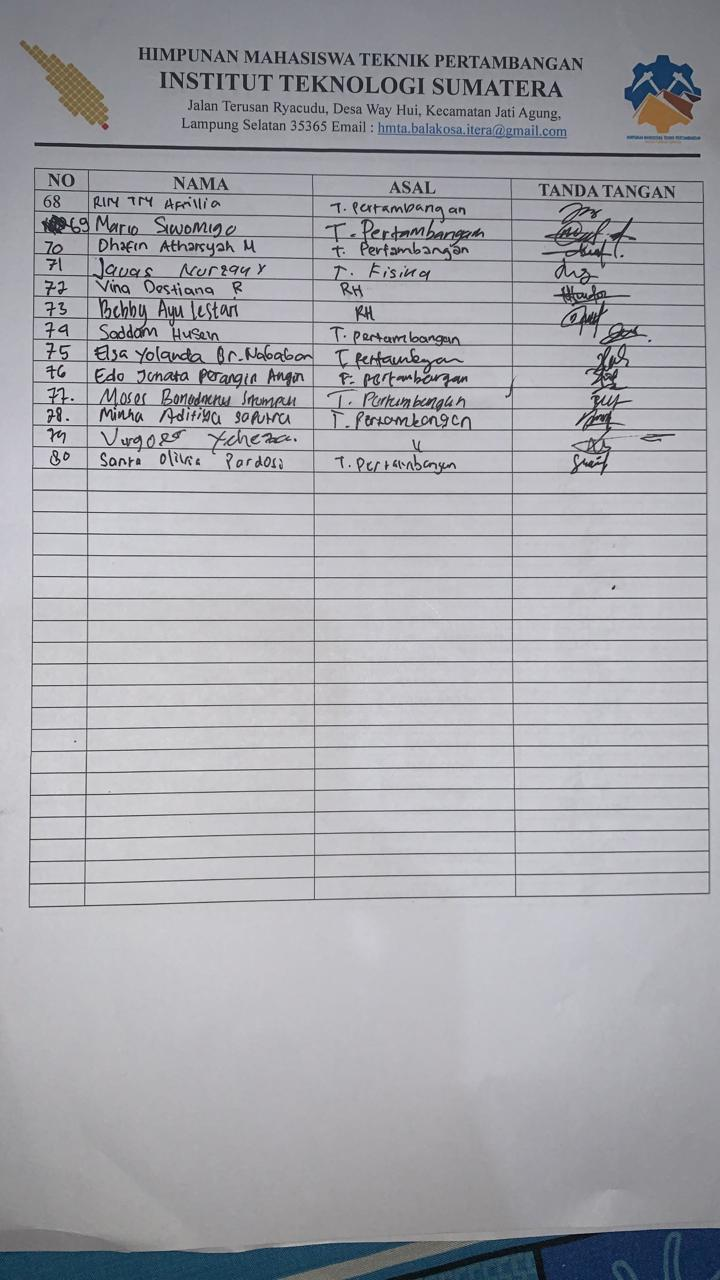 HIMPUNAN MAHASISWA TEKNIK PERTAMBANGAN
INSTITUT TEKNOLOGI SUMATERA
Jalan Terusan Ryacudu, Desa Way Hui, Kecamatan Jati Agung,
Lampung Selatan 35365 Email : hmta.balakosa.itera@gmail.com
NO NAMA ASAL TANDA TANGAN
68 Afrillia T. Pertambangan
69 Mario T. Pertambangan
70 Dhafin Atharsyah M T. Pertambangan
71 T. Fisina
72 Vina Destiana R RH
73 Bebby Ayu Lestari RH
74 Saddam Husein T. pertambangan
75 Elsa Yolanda Br. Nababan T pertambangan
76 Edo Jonata Perangin Angin pertambangan
77. Moses T. Pertambangan
78. Minha Aditiya Saputra T. Pertambangan
79
80 Santa Olivia Pardosi T. Pertambangan